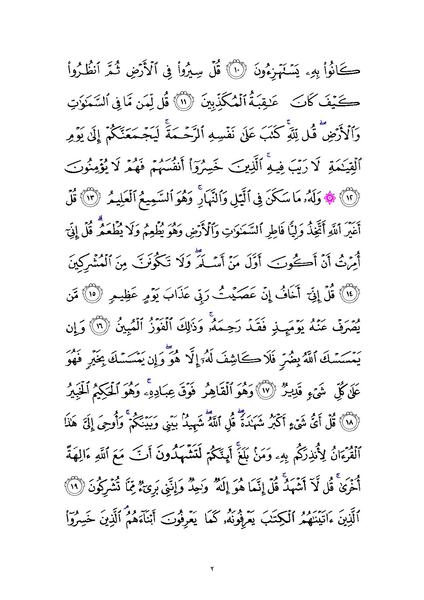 كَانُوا۟ بِهِۦ يَسْتَهْزِءُونَ ١٠ قُلْ سِيرُوا۟ فِى ٱلْأَرْضِ ثُمَّ ٱنظُرُوا۟
كَيْفَ كَانَ عَـٰقِبَةُ ٱلْمُكَذِّبِينَ ١١ قُل لِّمَن مَّا فِى ٱلسَّمَـٰوَٰتِ
وَٱلْأَرْضِ ۖ قُل لِّلَّهِ ۚ كَتَبَ عَلَىٰ نَفْسِهِ ٱلرَّحْمَةَ ۚ لَيَجْمَعَنَّكُمْ إِلَىٰ يَوْمِ
ٱلْقِيَـٰمَةِ لَا رَيْبَ فِيهِ ۚ ٱلَّذِينَ خَسِرُوٓا۟ أَنفُسَهُمْ فَهُمْ لَا يُؤْمِنُونَ
١٢ ۞ وَلَهُۥ مَا سَكَنَ فِى ٱلَّيْلِ وَٱلنَّهَارِ ۚ وَهُوَ ٱلسَّمِيعُ ٱلْعَلِيمُ ١٣ قُلْ
أَغَيْرَ ٱللَّهِ أَتَّخِذُ وَلِيًّا فَاطِرِ ٱلسَّمَـٰوَٰتِ وَٱلْأَرْضِ وَهُوَ يُطْعِمُ وَلَا يُطْعَمُ ۗ قُلْ إِنِّىٓ
أُمِرْتُ أَنْ أَكُونَ أَوَّلَ مَنْ أَسْلَمَ ۖ وَلَا تَكُونَنَّ مِنَ ٱلْمُشْرِكِينَ
١٤ قُلْ إِنِّىٓ أَخَافُ إِنْ عَصَيْتُ رَبِّى عَذَابَ يَوْمٍ عَظِيمٍ ١٥ مَّن
يُصْرَفْ عَنْهُ يَوْمَئِذٍ فَقَدْ رَحِمَهُۥ ۚ وَذَٰلِكَ ٱلْفَوْزُ ٱلْمُبِينُ ١٦ وَإِن
يَمْسَسْكَ ٱللَّهُ بِضُرٍّ فَلَا كَاشِفَ لَهُۥٓ إِلَّا هُوَ ۖ وَإِن يَمْسَسْكَ بِخَيْرٍ فَهُوَ
عَلَىٰ كُلِّ شَىْءٍ قَدِيرٌ ١٧ وَهُوَ ٱلْقَاهِرُ فَوْقَ عِبَادِهِۦ ۚ وَهُوَ ٱلْحَكِيمُ ٱلْخَبِيرُ
١٨ قُلْ أَىُّ شَىْءٍ أَكْبَرُ شَهَـٰدَةً ۖ قُلِ ٱللَّهُ ۖ شَهِيدٌۢ بَيْنِى وَبَيْنَكُمْ ۚ وَأُوحِىَ إِلَىَّ هَـٰذَا
ٱلْقُرْءَانُ لِأُنذِرَكُم بِهِۦ وَمَنۢ بَلَغَ ۚ أَئِنَّكُمْ لَتَشْهَدُونَ أَنَّ مَعَ ٱللَّهِ ءَالِهَةً
أُخْرَىٰ ۚ قُل لَّآ أَشْهَدُ ۚ قُلْ إِنَّمَا هُوَ إِلَـٰهٌ وَٰحِدٌ وَإِنَّنِى بَرِىٓءٌ مِّمَّا تُشْرِكُونَ ١٩
ٱلَّذِينَ ءَاتَيْنَـٰهُمُ ٱلْكِتَـٰبَ يَعْرِفُونَهُۥ كَمَا يَعْرِفُونَ أَبْنَآءَهُمُ ۘ ٱلَّذِينَ خَسِرُوٓا۟
٢